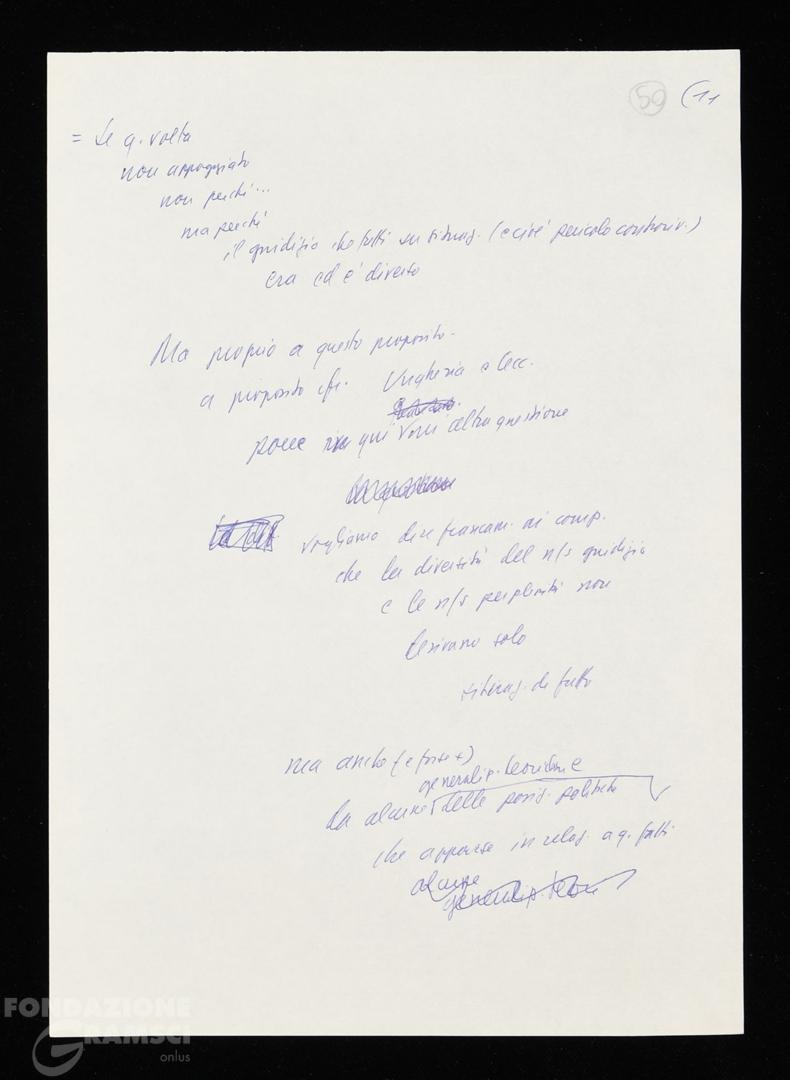 59 (11
= Se q. volta
non appoggiato
non perché...
ma perché
il giudizio che fatti su situaz. (e cioè pericolo controriv.)
era ed è diverso
Ma proprio a questo proposito -
a proposito cfr. Ungheria e Cec.
pone qui altra questione
vogliamo dire francam. ai comp.
che la diversità del n/s giudizio
e le n/s perplessità non
derivano solo
situaz. di fatto
ma anche (e forse +)
generaliz. teoriche
da alcune delle posiz. politiche
che apparse in relaz. a q. fatti
alcune
FONDAZIONE
GRAMSCI
onlus